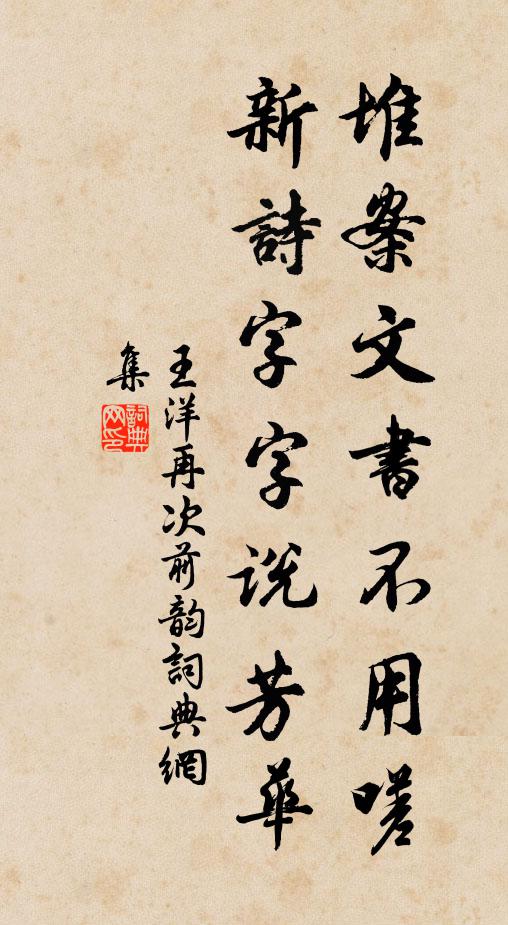 堆案文書不用嗟
新詩字字説芳華
王洋再次前韵詞典網
集
詞典
网印